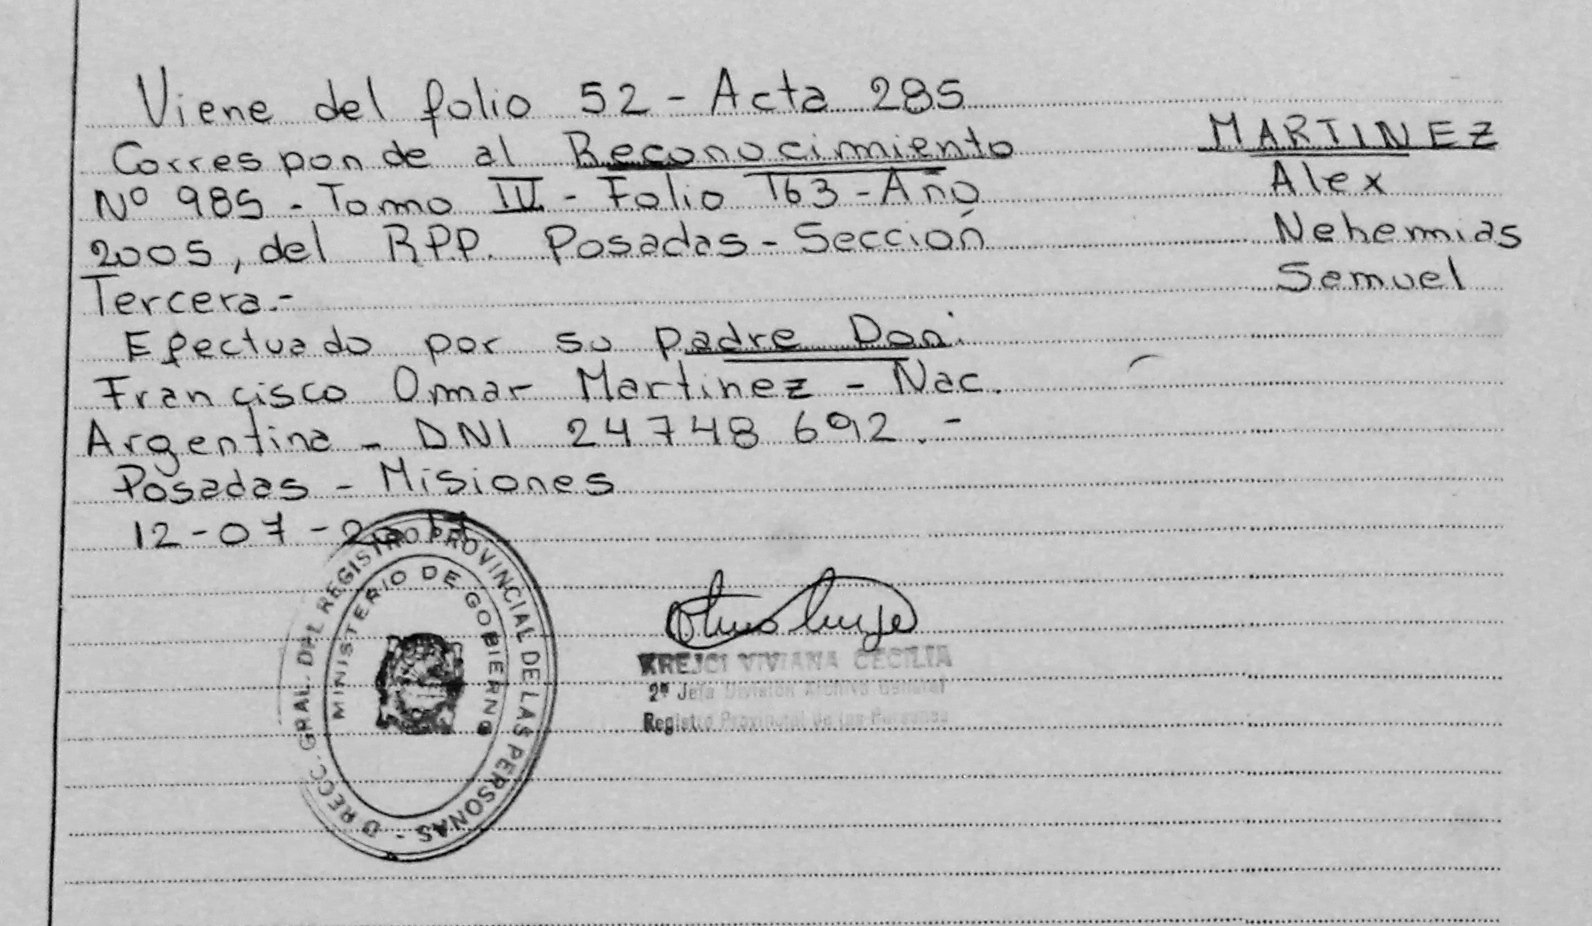 Viene del folio 52 - Acta 285
Corresponde al Reconocimiento
Nº 985 - Tomo IV - Folio 163 - Año
2005, del R.P.P. Posadas - Sección
Tercera.-
Efectuado por su padre Don:
Francisco Omar Martinez - Nac.
Argentina - DNI 24748692.-
Posadas - Misiones
12-07-2017
MARTINEZ
Alex
Nehemias
Semuel
DRECC. GRAL. DEL REGISTRO PROVINCIAL DE LAS PERSONAS -
MINISTERIO DE GOBIERNO
KREJCI VIVIANA CECILIA
2ª Jefa División Archivo General
Registro Provincial de las Personas